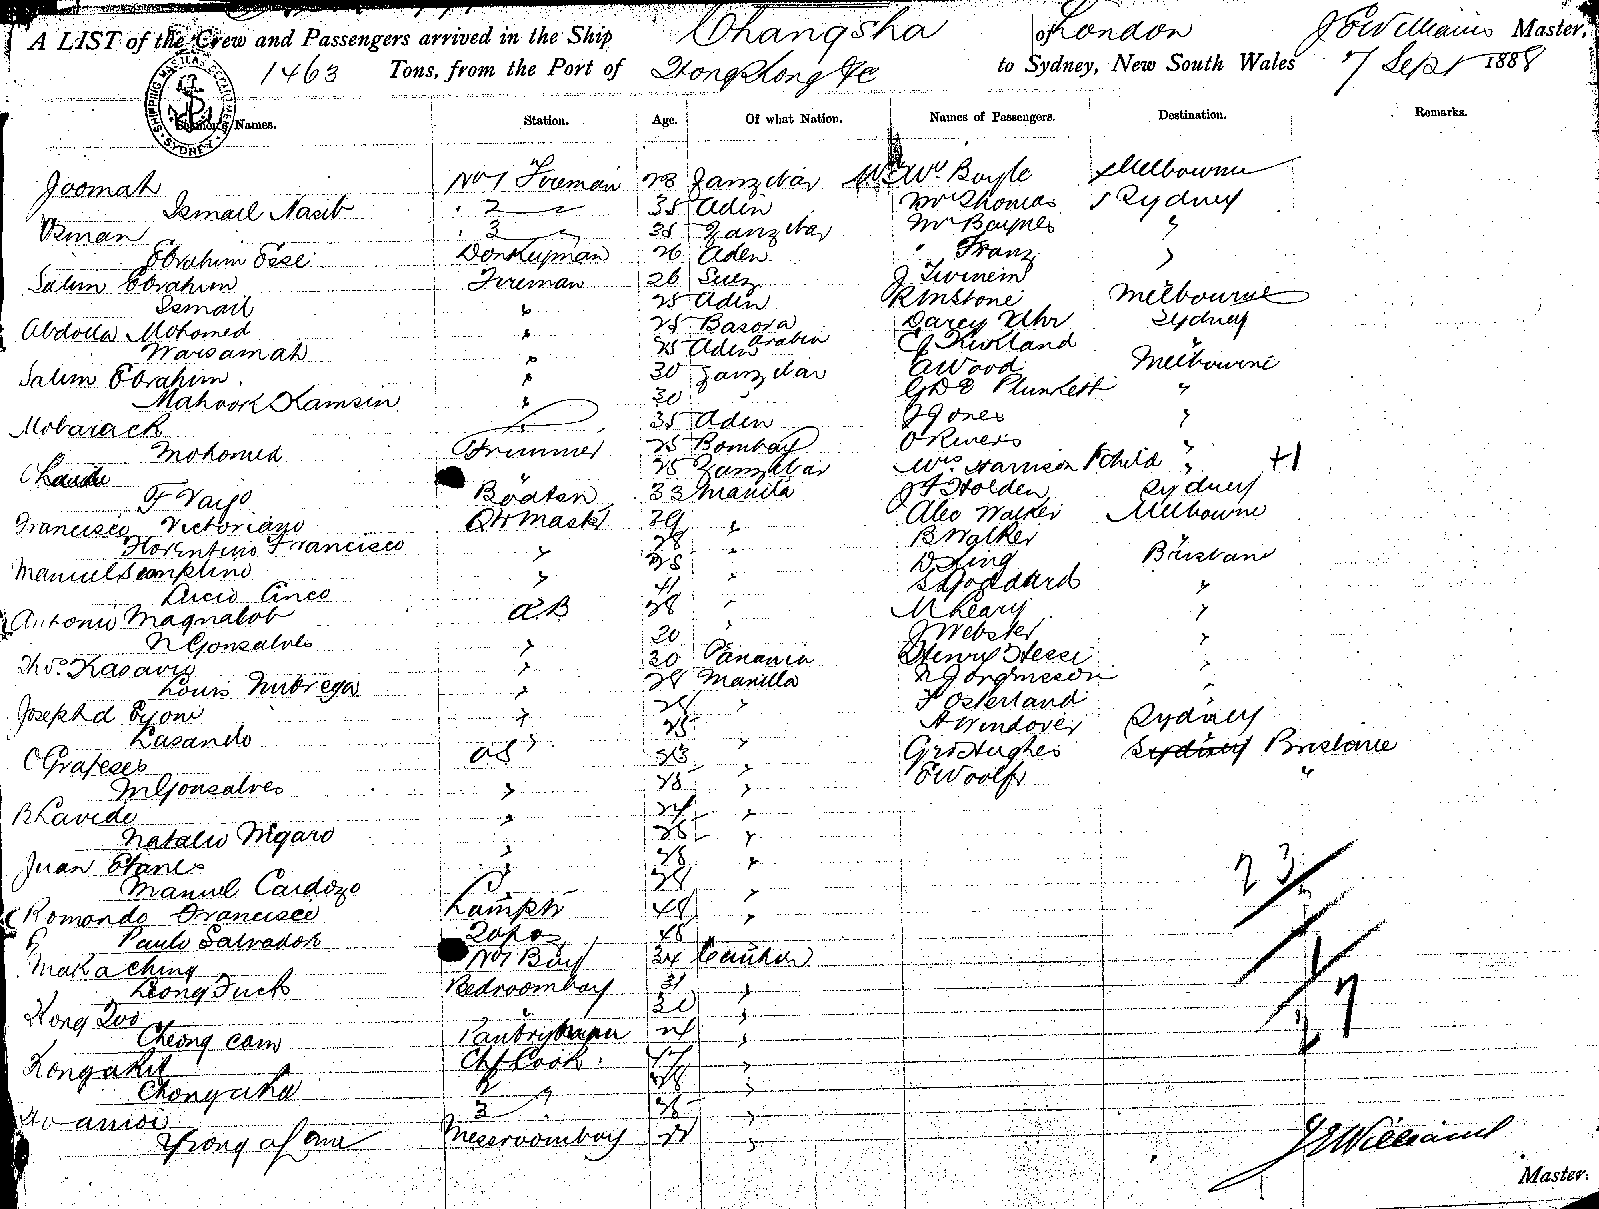 A LIST of the Crew and Passengers arrived in the Ship Changsha of London J E Williams Master,
1463 Tons, from the Port of Hong Kong &c to Sydney, New South Wales 7 Sept 1888
SHIPPING MASTER'S DEPARTMENT SYDNEY
Names. Station. Age. Of what Nation. Names of Passengers. Destination. Remarks.
Joomah No 1 Fireman 28 Zanzibar Boyle Melbourne
Ismail Nasib " 2 " 35 Aden Mr Thomas Sydney
Osman " 3 " 35 Zanzibar Mr Baynes "
Ebrahim Esse Donkeyman 26 Aden " Franz "
Salim Ebrahim Fireman 26 Suez J Twinein
Ismail " 25 Aden Stone Melbourne
Abdolla Mohomed " 25 Basora Arabia Darcy Uhr Sydney
Warsamah " 25 Aden Kirkland "
Salim Ebrahim " 30 Zanzibar Wood Melbourne
Mahook Kamsin " 30 " G D E Plunkett "
Mobarack " 35 Aden J Jones "
Mohomed Trimmer 25 Bombay O Rivers "
25 Zanzibar Mrs Harrison 1 Child " +1
F Vayo Boatsn 33 Manila J F Holden Sydney
Francisco Victoriano Qtr Mastr 39 " Alec Walker Melbourne
Florentino Francisco " 28 " B Walker
Manuel Simplino " 25 " D King Brisbane
Lucio Cinco " 41 " S Goddard "
Antonio Magnabob A B 28 " M Leary "
N Gonsalves " 30 " J Webster "
Thos Kasavis " 30 Panama Henry Hesse "
Louis Nubrega " 28 Manilla N Jorginsson "
Joseph d " 28 " F Osterland
Lasando " 25 " A Windover Sydney
C O S " 23 " Geo Hughes Sydney Brisbane
M Gonsalves " 28 " E Woolf "
B Lavido " 24 "
Natalio Nigaro " 25 "
Juan " 28 "
Manuel Cardozo " 28 "
Romondo Francisco Lamptr 48 " 23
Paulo Salvador 48
Maka Ching No 1 Boy 34 Canton
Leong Fuck Bedroomboy 31 " 4
Kong 30 " 27
Cheong cam Pantryman 24 "
Kongakit Chf Cook 47 "
Chongaka 2 " 28 "
3 " 25 "
Messroomboy 22 "
J E Williams
Master.